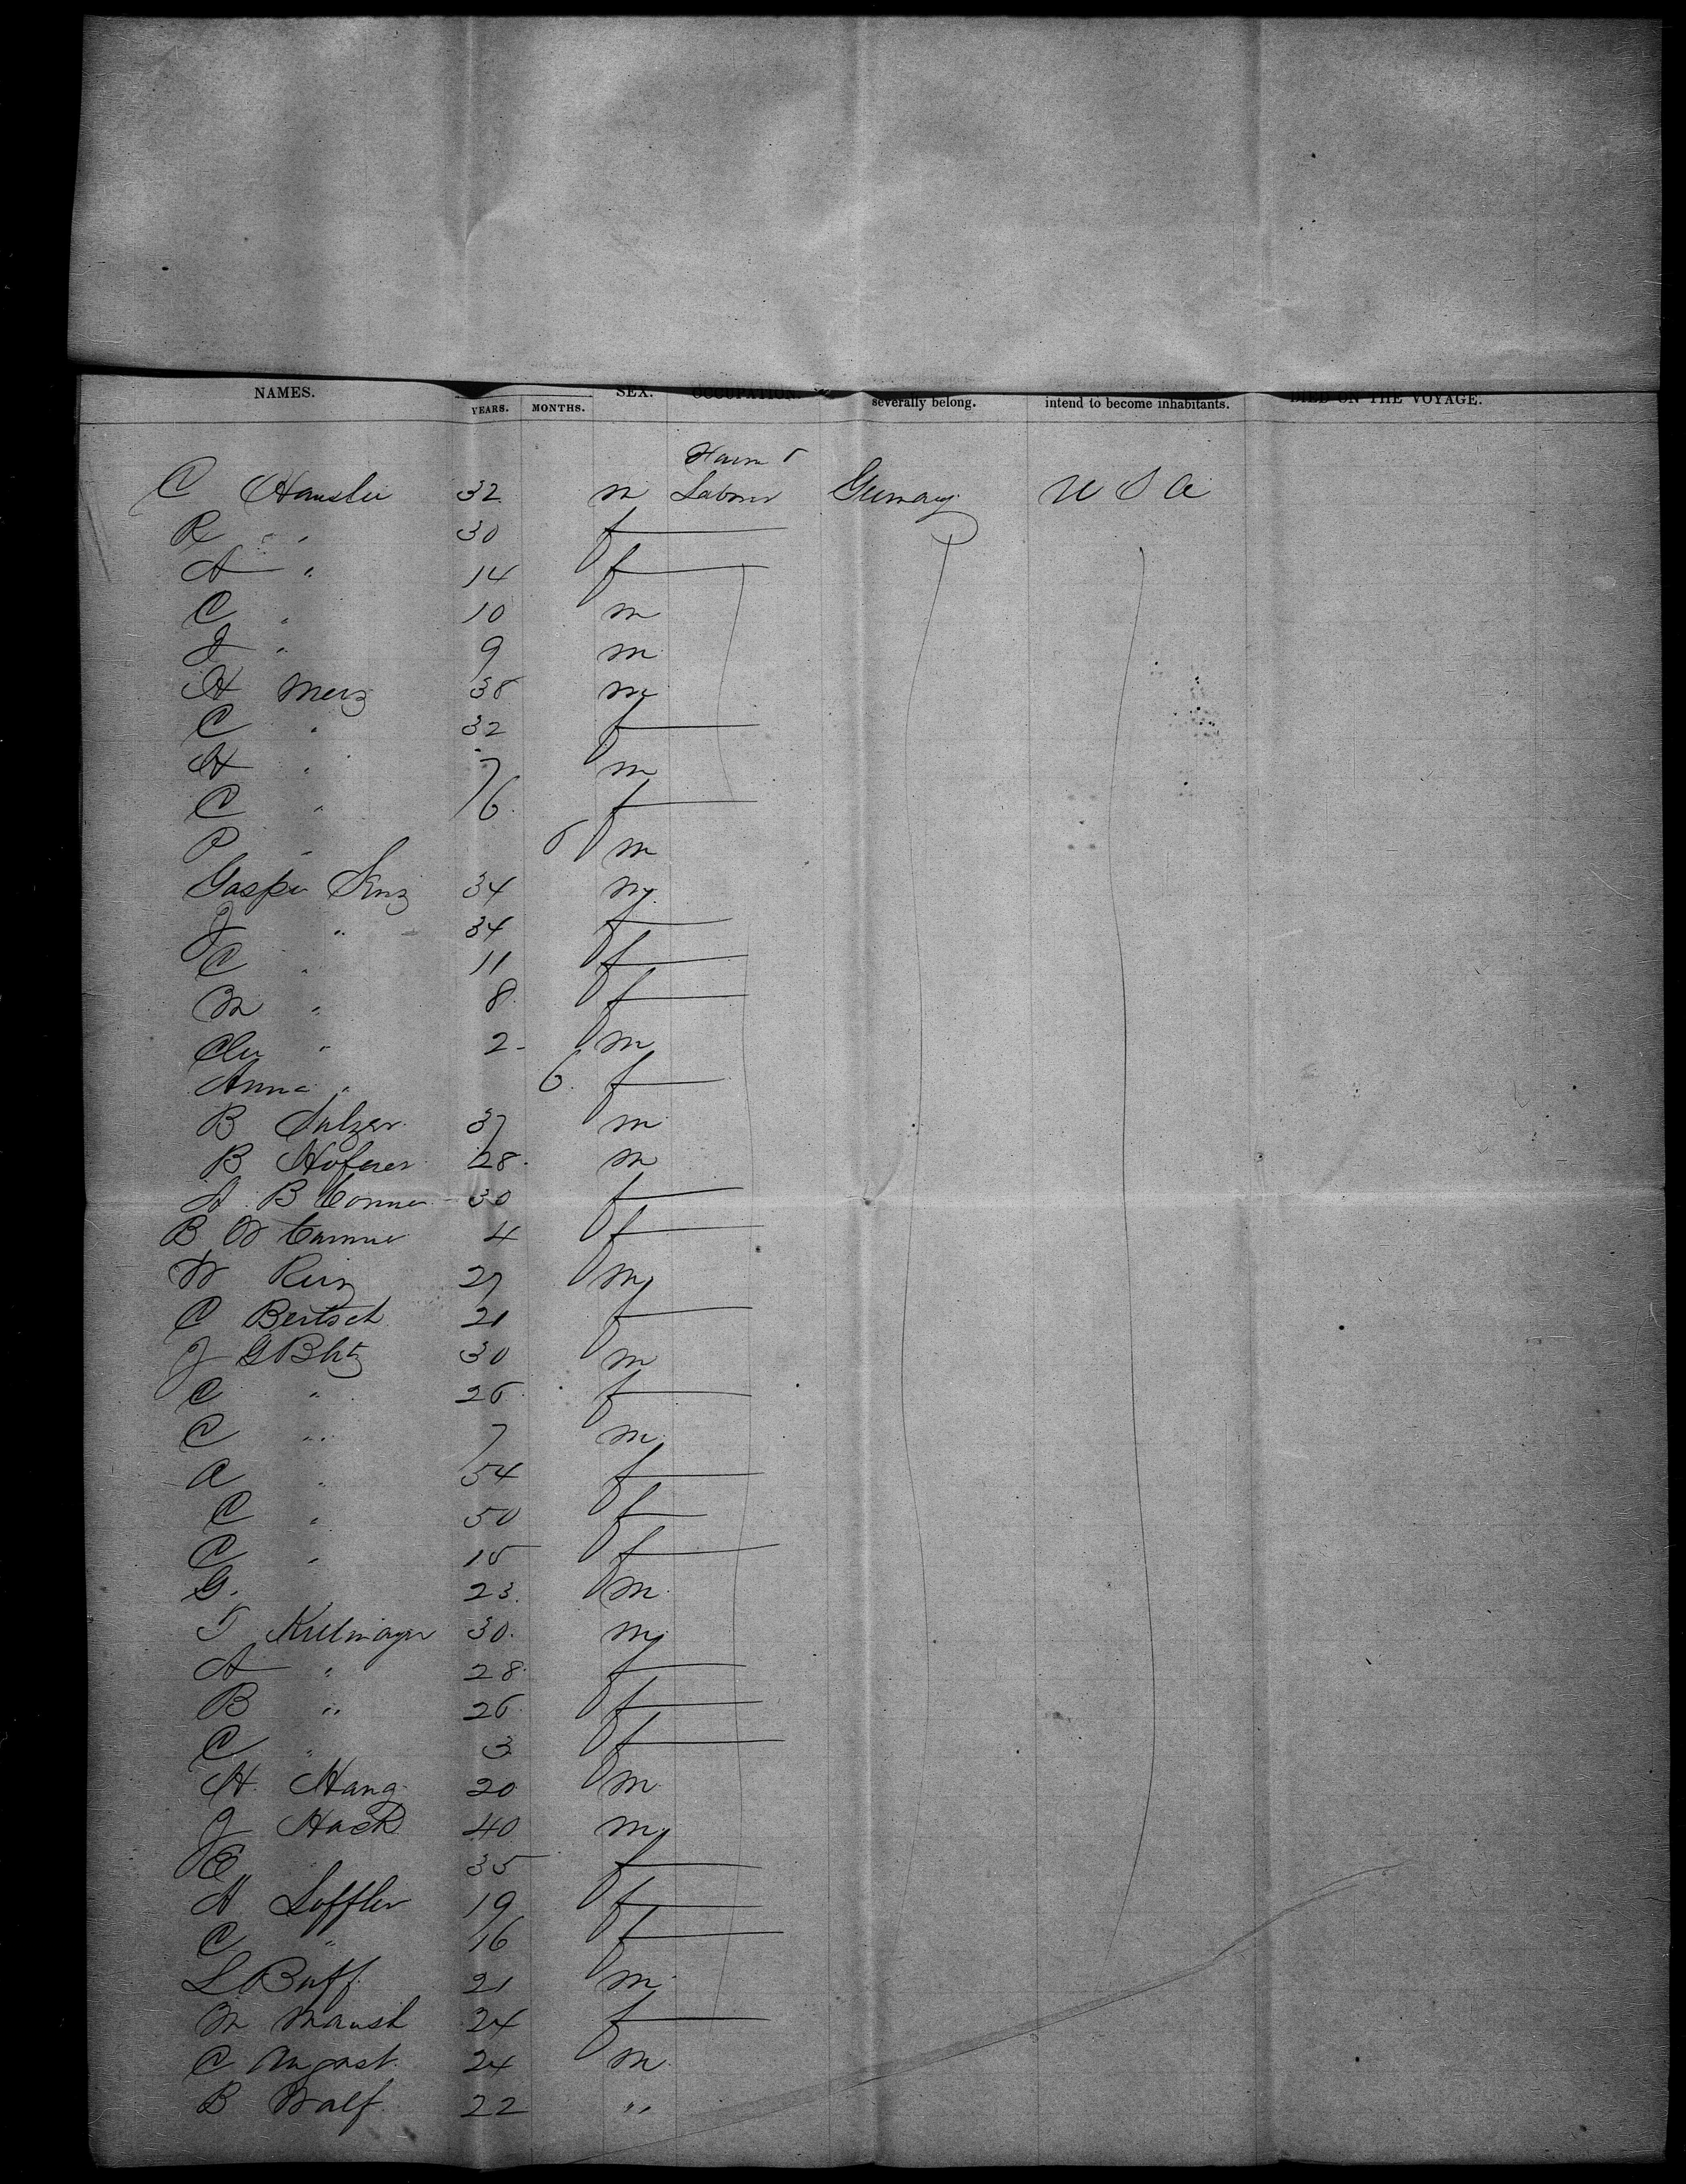 NAMES. YEARS. MONTHS. SEX. OCCUPATION. severally belong. intend to become inhabitants. DIED ON THE VOYAGE.
C 32 m Laborer Germany U S A
R " 30 f
A " 14 f
C " 10 m
J " 9 m
H Merz 38 m
C " 32 f
H " 7 m
C " 6 f
P " 6 m
34 m
J " 34 f
C " 11 f
M " 8 f
" 2 m
Anna " 6 f
B Sulzer 37 m
B Hoferer 28 m
A B 30 f
B W 4 f
W 27 m
C Bertsch 21 f
J G 30 m
C " 26 f
C " 7 m
A " 54 f
C " 50 f
C " 15 f
G. 23 m
30 m
A " 28 f
B " 26 f
C " 3 f
H Hang 20 m
J Hack 40 m
E " 35 f
H Loffler 19 f
C " 16 f
L Buff 21 m
M 24 f
C 24 m
B Walf 22 "